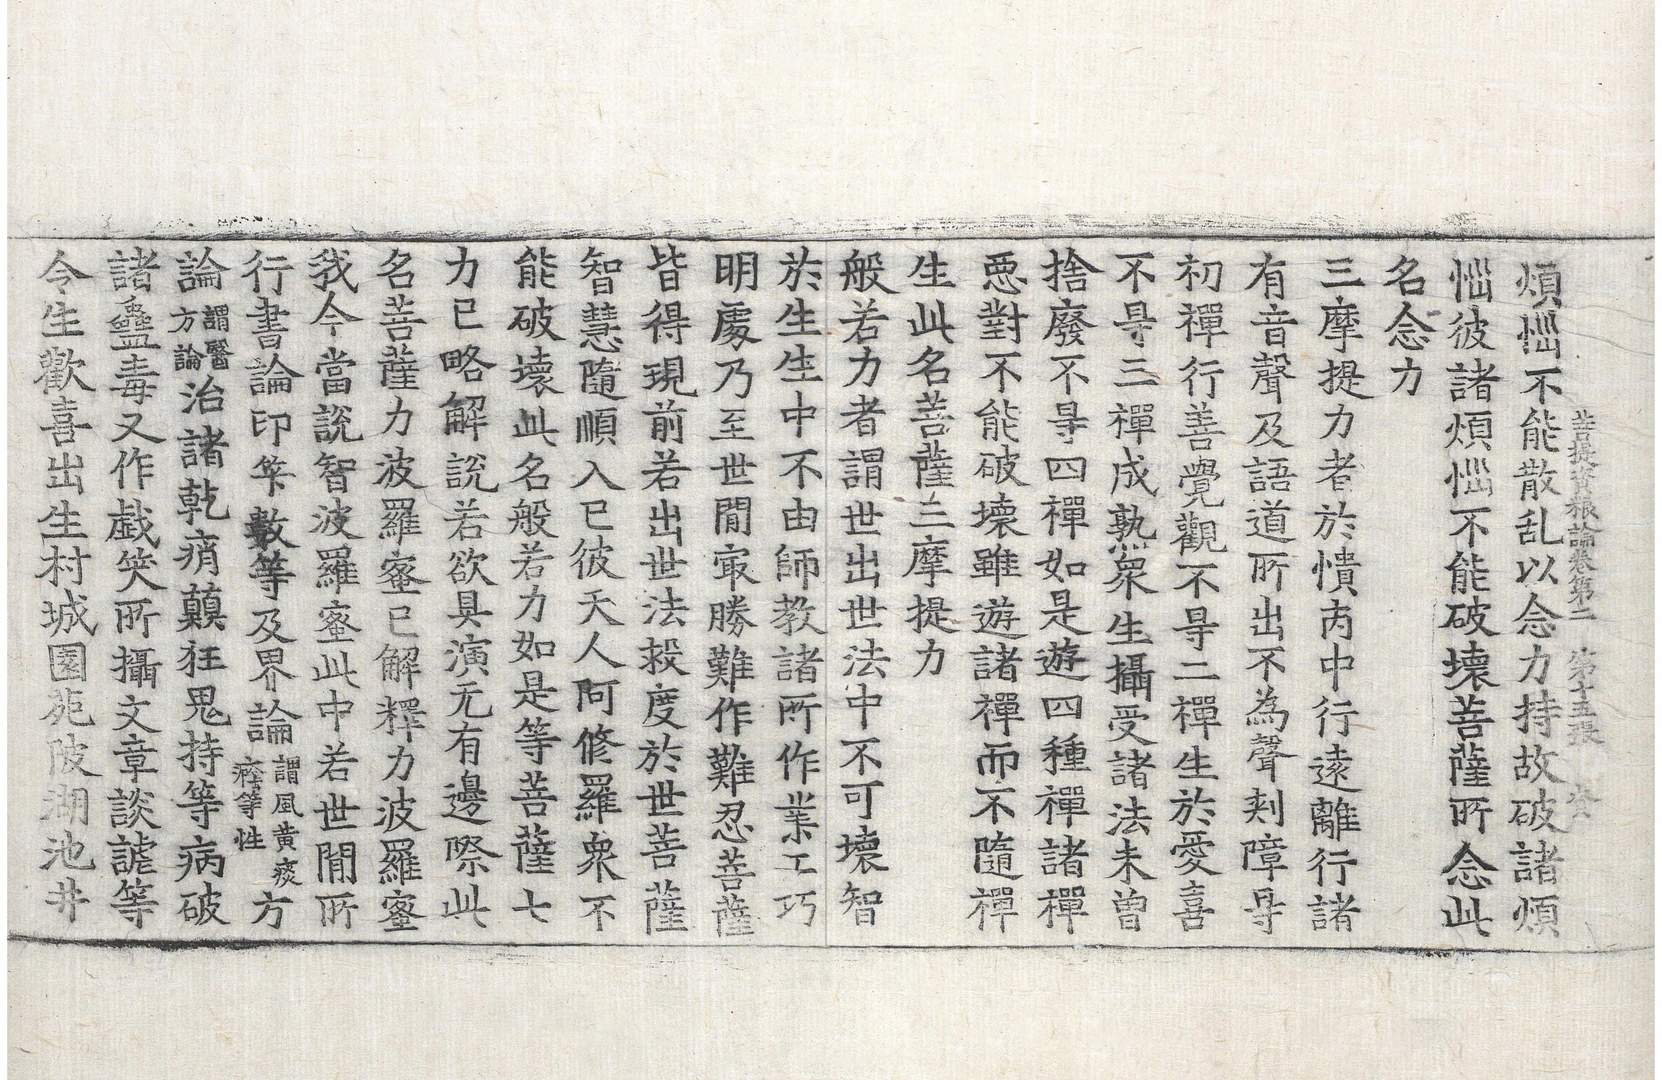 菩提資粮論卷第二 第十五張
煩惱不能散乱以念力持故破諸煩
惱彼諸煩惱不能破壞菩薩所念此
名念力
三摩提力者於憒丙中行遠離行諸
有音聲及語道所出不為聲刾障㝵
初禪行善覺觀不㝵二禪生於愛喜
不㝵三禪成熟衆生攝受諸法未曾
捨廢不㝵四禪如是遊四種禪諸禪
惡對不能破壞雖遊諸禪而不隨禪
生此名菩薩三摩提力
般若力者謂世出世法中不可壞智
於生生中不由師教諸所作業工巧
明處乃至世間㝡勝難作難忍菩薩
皆得現前若出世法救度於世菩薩
智慧隨順入已彼天人阿修羅衆不
能破壞此名般若力如是等菩薩七
力已略解說若欲具演无有邊際此
名菩薩力波羅蜜已解釋力波羅蜜
我今當說智波羅蜜此中若世間所
行書論印笇數等及界論謂風黃痰癊等性方
論謂醫方論治諸乾痟顛狂鬼持等病破
諸蠱毒又作戱笑所攝文章談謔等
令生歡喜出生村城園苑陂湖池井